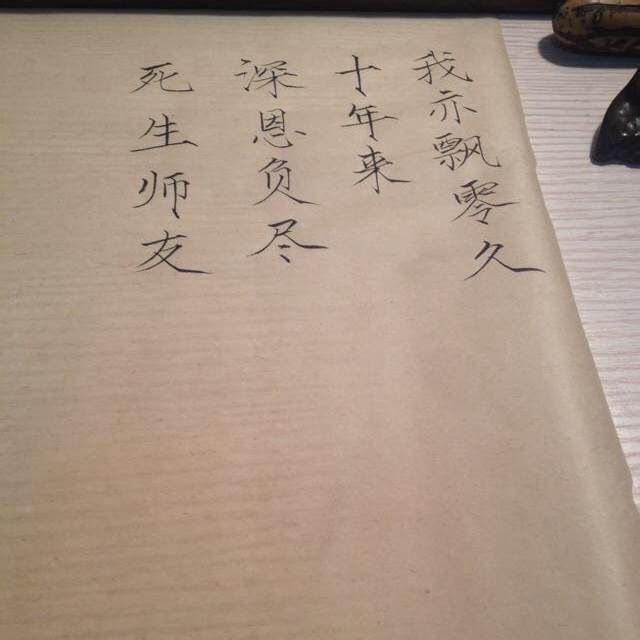 我亦飘零久
十年来
深恩负尽
死生师友